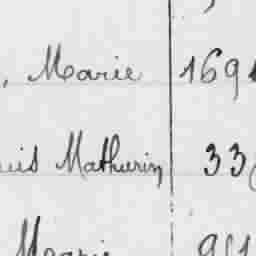 , Marie 169
uis Mathurin 33
Marie